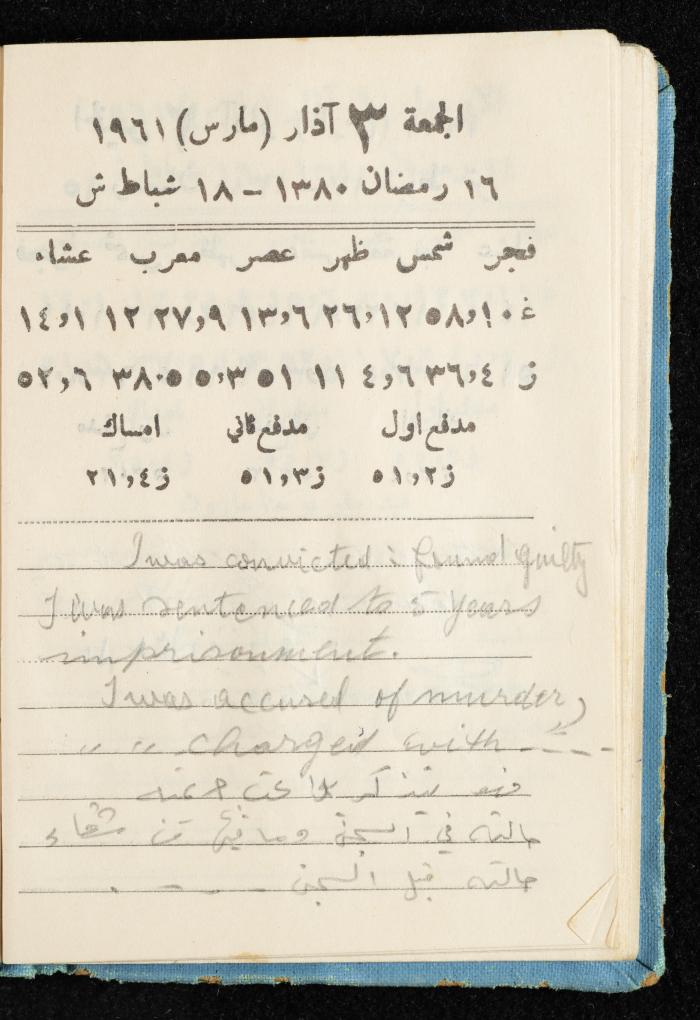 الجمعة ٣ آذار (مارس) ١٩٦١
١٦ رمضان ١٣٨٠ - ١٨ شباط ش
فجر شمس ظهر عصر مغرب عشاء
غ ١٠,٥٨ ١٢,٢٦ ٦,١٣ ٩,٢٧ ١٢ ١,١٤
ز ٤,٣٦ ٦,٤ ١١ ٥١ ٣,٥ ٥ ٣٨ ٦,٥٢
مدفع اول مدفع ثاني امساك
ز ٢,٥١ ز ٣,٥١ ز ٤,٢١
I was convicted : found guilty
I was sentenced to 5 years
imprisonment.
I was accused of murder
" " charged with - - - -
تتذكر
حالته في السجن وما فيها من شقاء
حالته قبل السجن - - - .